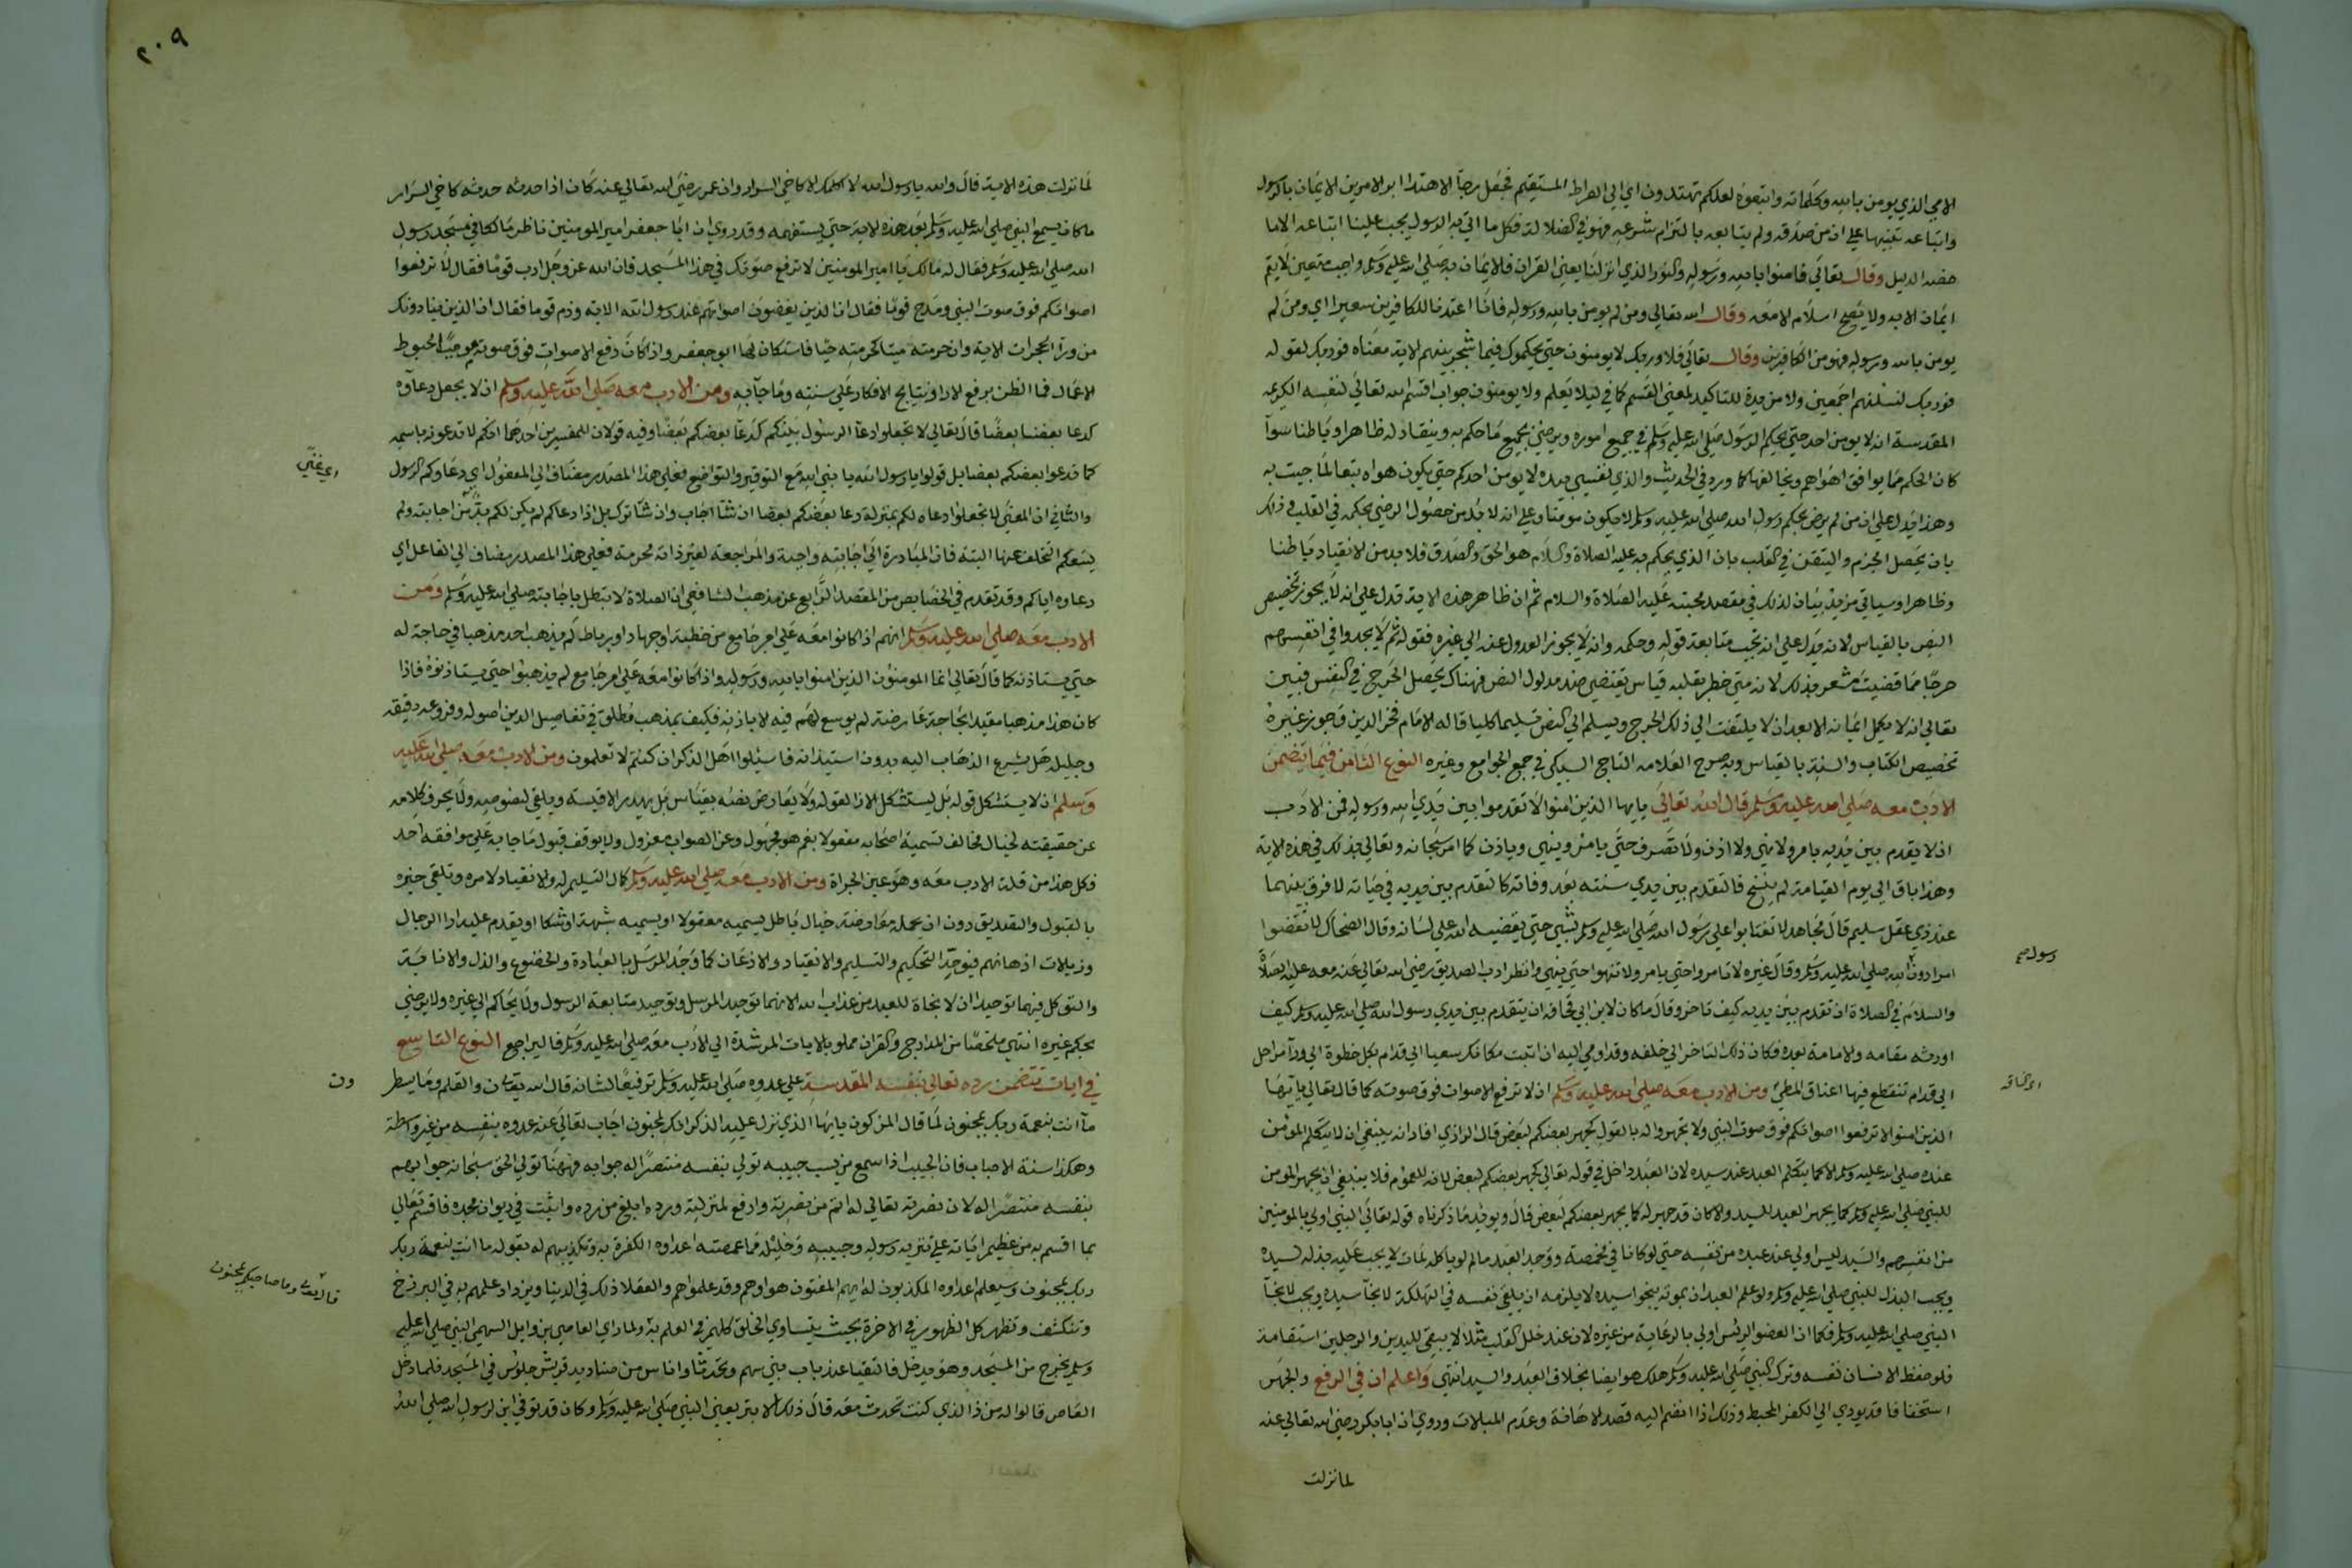 الامي الذي يومن بالله وكلماته واتبعوه لعلكم تهتدون اي الي الصراط المستقيم فجعل رجا الاهتدا ابو الامرين الايمان بالرسول
واتباعه تنبيها علي ان من صدقه ولم يتابعه بالتزام شرعه فهو في الضلالة فكل ما اتي به الرسول يجب علينا اتباعه الا ما
خصه الدليل وقال تعالي فامنوا بالله ورسوله والنور الذي انزلنا يعني القران فالايمان به صلي الله عليه وسلم واجب متعين لا يتم
ايمان الا به ولا يصح اسلام الا معه وقال الله تعالي ومن لم يومن بالله ورسوله فانا اعتدنا للكافرين سعيرا اي ومن لم
يومن بالله ورسوله فهو من الكافرين وقال تعالي فلا وربك لا يومنون حتي يحكموك فيما شجر بينهم الاية معناه فوربك لقوله
فوربك لنسئلنهم اجمعين ولا مزيدة للتاكيد لمعني القسم كما في ليلا يعلم ولا يومنون جواب اقسم الله تعالي لنفسه الكريمة
المقدسة انه لا يومن احد حتي يحكم الرسول صلي الله عليه وسلم في جميع اموره ويرضي بجميع ما حكم به وينقاد له ظاهرا وباطنا سوآ
كان الحكم مما يوافق اهواهم ويخالفها كما ورد في الحديث والذي نفسي بيده لا يومن احدكم حتي يكون هواه تبعا لما جيت به
وهذا يدل علي ان من لم يرض بحكم رسول الله صلي الله عليه وسلم لا يكون مومنا وعلي انه لا بد من حصول الرضي بحكمه في القلب وذلك
بان يحصل الجزم والتيقن في القلب بان الذي يحكم به عليه الصلاة والسلام هو الحق والصدق فلا بد من الانقياد باطنا
وظاهرا وسياتي مزيد بيان لذلك في مقصد محبته عليه الصلاة والسلام ثم ان ظاهر هذه الاية تدل علي انه لا يجوز تخصيص
النص بالقياس لانه يدل علي انه يجب متابعة قوله وحكمه وانه لا يجوز العدول عنه الي غيره فقوله ثم لا يجدوا في انفسهم
حرجا مما قضيت مشعر بذلك لانه متي خطر بقلبه قياس يقتضي ضد مدلول النص فهناك يحصل الحرج في النفس فبين
تعالي انه لا يكمل ايمانه الا بعد ان لا يلتفت الي ذلك الحرج ويسلم الي النص تسليما كليا قاله الامام فخر الدين وجوز غيره
تخصيص الكتاب والسنة بالقياس وبه صرح العلامه التاج السبكي في جمع الجوامع وغيره النوع الثامن فيما يتضمن
الادب معه صلي الله عليه وسلم قال الله تعالي يايها الذين امنوا لا تقدموا بين يدي الله ورسوله فمن الادب
ان لا يقدم بين يديه بامر ولا نهي ولا اذن ولا تصرف حتي يامر وينهي وياذن كما امر سبحانه وتعالي بذلك في هذه الاية
وهذا باق الي يوم القيامة لم ينسخ فالتقدم بين يدي سنته بعد وفاته كالتقدم بين يديه في حياته لا فرق بينهما
عند ذي عقل سليم قال مجاهد لا تفتاتوا علي رسول الله صلي الله عليه وسلم بشي حتي يقضيه الله علي لسانه وقال الضحاك لا تقضوا
امرا دون الله صلي الله عليه وسلم وقال غيره لا تامروا حتي يامر ولا تنهوا حتي ينهي وانظر ادب الصديق رضي الله تعالي عنه معه عليه الصلاة
رسول صح
والسلام في الصلاة ان تقدم بين يديه كيف تاخر وقال ما كان لابن ابي قحافة ان يتقدم بين يدي رسول الله صلي الله عليه وسلم كيف
اورثه مقامه والامامة بعده فكان ذلك التاخر الي خلفه وقد اومي اليه ان اثبت مكانك سعيا الي قدام بكل خطوة الي ورآ مراحل
الي قدام تنقطع فيها اعناق المطي ومن الادب معه صلي الله عليه وسلم ان لا ترفع الاصوات فوق صوته كما قال تعالي يايها
الذين امنوا لا ترفعوا اصواتكم فوق صوت النبي ولا تجهروا له بالقول كجهر بعضكم لبعض قال الرازي افاد انه ينبغي ان لا يتكلم المومن
عنده صلي الله عليه وسلم الا كما يتكلم العبد عند سيده لان العبد داخل في قوله تعالي كجهر بعضكم لبعض لانه للعموم فلا ينبغي ان يجهر المومن
للنبي صلي الله عليه وسلم كما يجهر العبد للسيد والا كان قد جهر له كما يجهر بعضكم لبعض قال ويويد ما ذكرناه قوله تعالي النبي اولي بالمومنين
من انفسهم والسيد ليس اولي عند عبده من نفسه حتي لو كانا في مخمصة ووجد العبد ما لم لو ياكله لمات لا يجب عليه بذله لسيده
ويجب البذل للنبي صلي الله عليه وسلم ولو علم العبد ان بموته ينجوا سيده لا يلزمه ان يلقي نفسه في التهلكة لانجآ سيده ويجب لانجآ
النبي صلي الله عليه وسلم فكما ان العضو الرئيس اولي بالرعاية من غيره لان عند خلل القلب مثلا لا يبقي لليدين والرجلين استقامة
فلو حفظ الانسان نفسه وترك النبي صلي الله عليه وسلم هلك هو ايضا بخلاف العبد والسيد انتهي واعلم ان في الرفع والجهر
استخفافا قد يودي الي الكفر المحبط وذلك اذا انضم اليه قصد الاهانة وعدم المبالات وروي ان ابا بكر رضي الله تعالي عنه
لما نزلت
٢٠٩
لما نزلت هذه الاية قال والله يا رسول الله لا اكلمك الا كاخي السرار وان عمر رضي الله تعالي عنه كان اذا حدثه حدثه كاخي السرار
ما كان يسمع النبي صلي الله عليه وسلم بعد هذه الاية حتي يستفهمه وقد روي ان ابا جعفر امير المومنين ناظر مالكا في مسجد رسول
الله صلي الله عليه وسلم فقال له مالك يا امير المومنين لا ترفع صوتك في هذا المسجد فان الله عز وجل ادب قوما فقال لا ترفعوا
اصواتكم فوق صوت النبي ومدح قوما فقال ان الذين يغضون اصواتهم عند رسول الله الاية وذم قوما فقال ان الذين ينادونك
من ورآ الحجرات الاية وان حرمته ميتا كحرمته حيا فاستكان لها ابو جعفر واذا كان رفع الاصوات فوق صوته موجبا لحبوط
الاعمال فما الظن برفع الارا ونتايج الافكار علي سنته وما جآ به ومن الادب معه صلي الله عليه وسلم ان لا يجعل دعآوه
كدعا بعضنا بعضا قال تعالي لا تجعلوا دعآ الرسول بينكم كدعا بعضكم بعضا وفيه قولان للمفسرين احدهما انكم لا تدعونه باسمه
كما تدعوا بعضكم بعضا بل قولوا يا رسول الله يا نبي الله مع التوقير والتواضع فعلي هذا المصدر مضاف الي المفعول اي دعاوكم الرسول
والثاني ان المعني لا تجعلوا دعاه لكم بمنزلة دعا بعضكم بعضا ان شآ اجاب وان شآ ترك بل اذا دعاكم لم يكن لكم بد من اجابته ولم
يسعكم التخلف عنها البتة فان المبادرة الي اجابته واجبة والمراجعة لغير ذاته محرمة فعلي هذا المصدر مضاف الي الفاعل اي
دعاوه اياكم وقد تقدم في الخصايص من المقصد الرابع عن مذهب الشافعي ان الصلاة لا تبطل باجابته صلي الله عليه وسلم ومن
الادب معه صلي الله عليه وسلم انهم اذا كانوا معه علي امر جامع من خطبة او جهاد او رباط لم يذهب احد مذهبا في حاجة له
حتي يستاذنه كما قال تعالي انما المومنون الذين امنوا بالله ورسوله واذا كانوا معه علي امر جامع لم يذهبوا حتي يستاذنوه فاذا
كان هذا مذهبا مقيدا بحاجة عارضة لم يوسع لهم فيه الا باذنه فكيف بمذهب مطلق في تفاصيل الدين اصوله وفروعه دقيقه
وجليله هل يشرع الذهاب اليه بدون استيذانه فاسئلوا اهل الذكر ان كنتم لا تعلمون ومن الادب معه صلي الله عليه
وسلم ان لا يستشكل قوله بل يستشكل الارا لقوله ولا يعارض نصه بقياس بل يهدر الاقيسة ويلقي لنصوصه ولا يحرف كلامه
عن حقيقته لخيال مخالف تسمية اصحابه معقولا نعم هو مجهول وعن الصواب معزول ولا يوقف قبول ما جا به علي موافقة احد
فكل هذا من قلة الادب معه وهو عين الجراة ومن الادب معه صلي الله عليه وسلم كمال التسليم له والانقياد لامره وتلقي خبره
بالقبول والتصديق دون ان يحمله معارضة خيال باطل يسميه معقولا او يسميه شبهة او شكا او يقدم عليه ارا الرجال
وزبالات اذهانهم فيوحد التحكيم والتسليم والانقياد والاذعان كما وحد المرسل بالعبادة والخضوع والذل والانابة
والتوكل فيهما توحيدان لا نجاة للعبد من عذاب الله الا بهما توحيد المرسل وتوحيد متابعة الرسول ولا يحاكم الي غيره ولا يرضي
بحكم غيره انتهي ملخصا من المدارج والقران مملو بالايات المرشدة الي الادب معه صلي الله عليه وسلم فاليراجع النوع التاسع
في ايات تتضمن رده تعالي بنفسه المقدسة علي عدوه صلي الله عليه وسلم ترفيعا لشانه قال الله تعالي ن والقلم وما يسطرون
مآ انت بنعمة ربك بمجنون لما قال المشركون يايها الذي نزل عليه الذكر انك لمجنون اجاب تعالي عنه عدوه بنفسه من غير واسطة
وهكذا سنة الاحباب فان الحبيب اذا سمع من يسب حبيبه تولي بنفسه منتصرا له جوابه فههنا تولي الحق سبحانه جوابهم
بنفسه منتصرا له لان نصرته تعالي له اتم من نصرته وارفع لمنزلته ورده ابلغ من رده واثبت في ديوان مجده فاقسم تعالي
بما اقسم به من عظيم اياته علي تنزيه رسوله وحبيبه وخليله مما غمصته اعداوه الكفرة به وتكذيبهم له بقوله ما انت بنعمة ربك
ربك بمجنون وسيعلم اعداوه المكذبون له ايهم المفتون هو او هم وقد علموا هم والعقلا ذلك في الدنيا ويزداد علمهم به في البرزخ
وتنكشف وتظهر كل الظهور في الاخرة بحيث يتساوي الخلق كلهم في العلم به ولما راي العاصي بن وايل السهمي النبي صلي الله عليه
وسلم يخرج من المسجد وهو يدخل فالتقيا عند باب بني سهم وتحدثا واناس من صناديد قريش جلوس في المسجد فلما دخل
العاص قالوا له من ذا الذي كنت تحدث معه قال ذلك الابتر يعني النبي صلي الله عليه وسلم وكان قد توفي ابن لرسول الله صلي الله